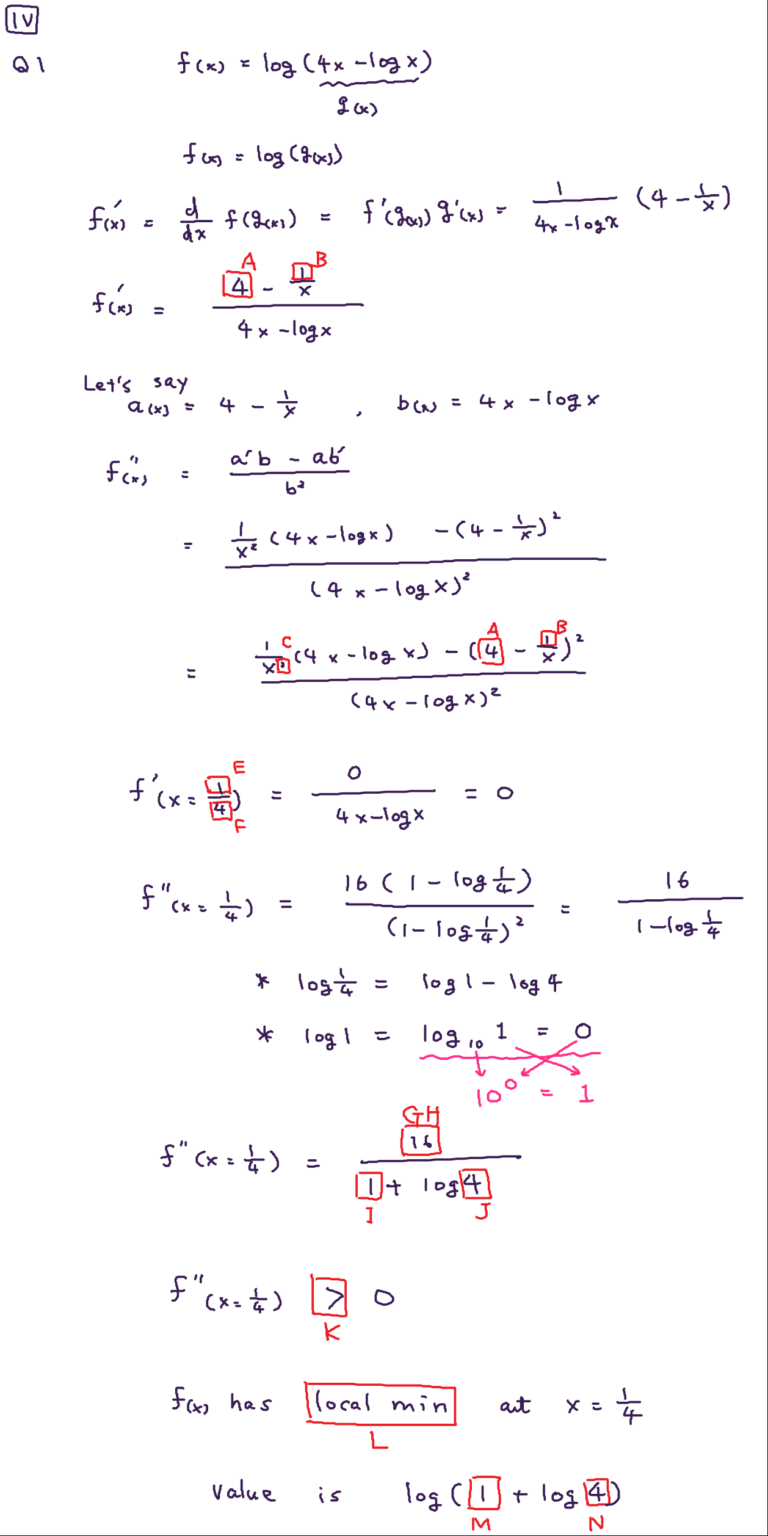 IV
Q1 f(x) = log(4x - log x)
g(x)
f(x) = log(g(x))
f'(x) = d/dx f(g(x)) = f'(g(x)) g'(x) = 1/(4x - log x) (4 - 1/x)
A B
f'(x) = (4 - 1/x)/(4x - log x)
Let's say
a(x) = 4 - 1/x , b(x) = 4x - log x
f''(x) = (a'b - ab')/b²
= (1/x² (4x - log x) - (4 - 1/x)²)/(4x - log x)²
C A B
= (1/x² (4x - log x) - (4 - 1/x)²)/(4x - log x)²
E
f'(x = 1/4) = 0/(4x - log x) = 0
F
f''(x = 1/4) = 16(1 - log 1/4)/(1 - log 1/4)² = 16/(1 - log 1/4)
* log 1/4 = log 1 - log 4
* log 1 = log₁₀ 1 = 0
10⁰ = 1
GH
f''(x = 1/4) = 16/(1 + log 4)
I J
f''(x = 1/4) > 0
K
f(x) has local min at x = 1/4
L
value is log(1 + log 4)
M N